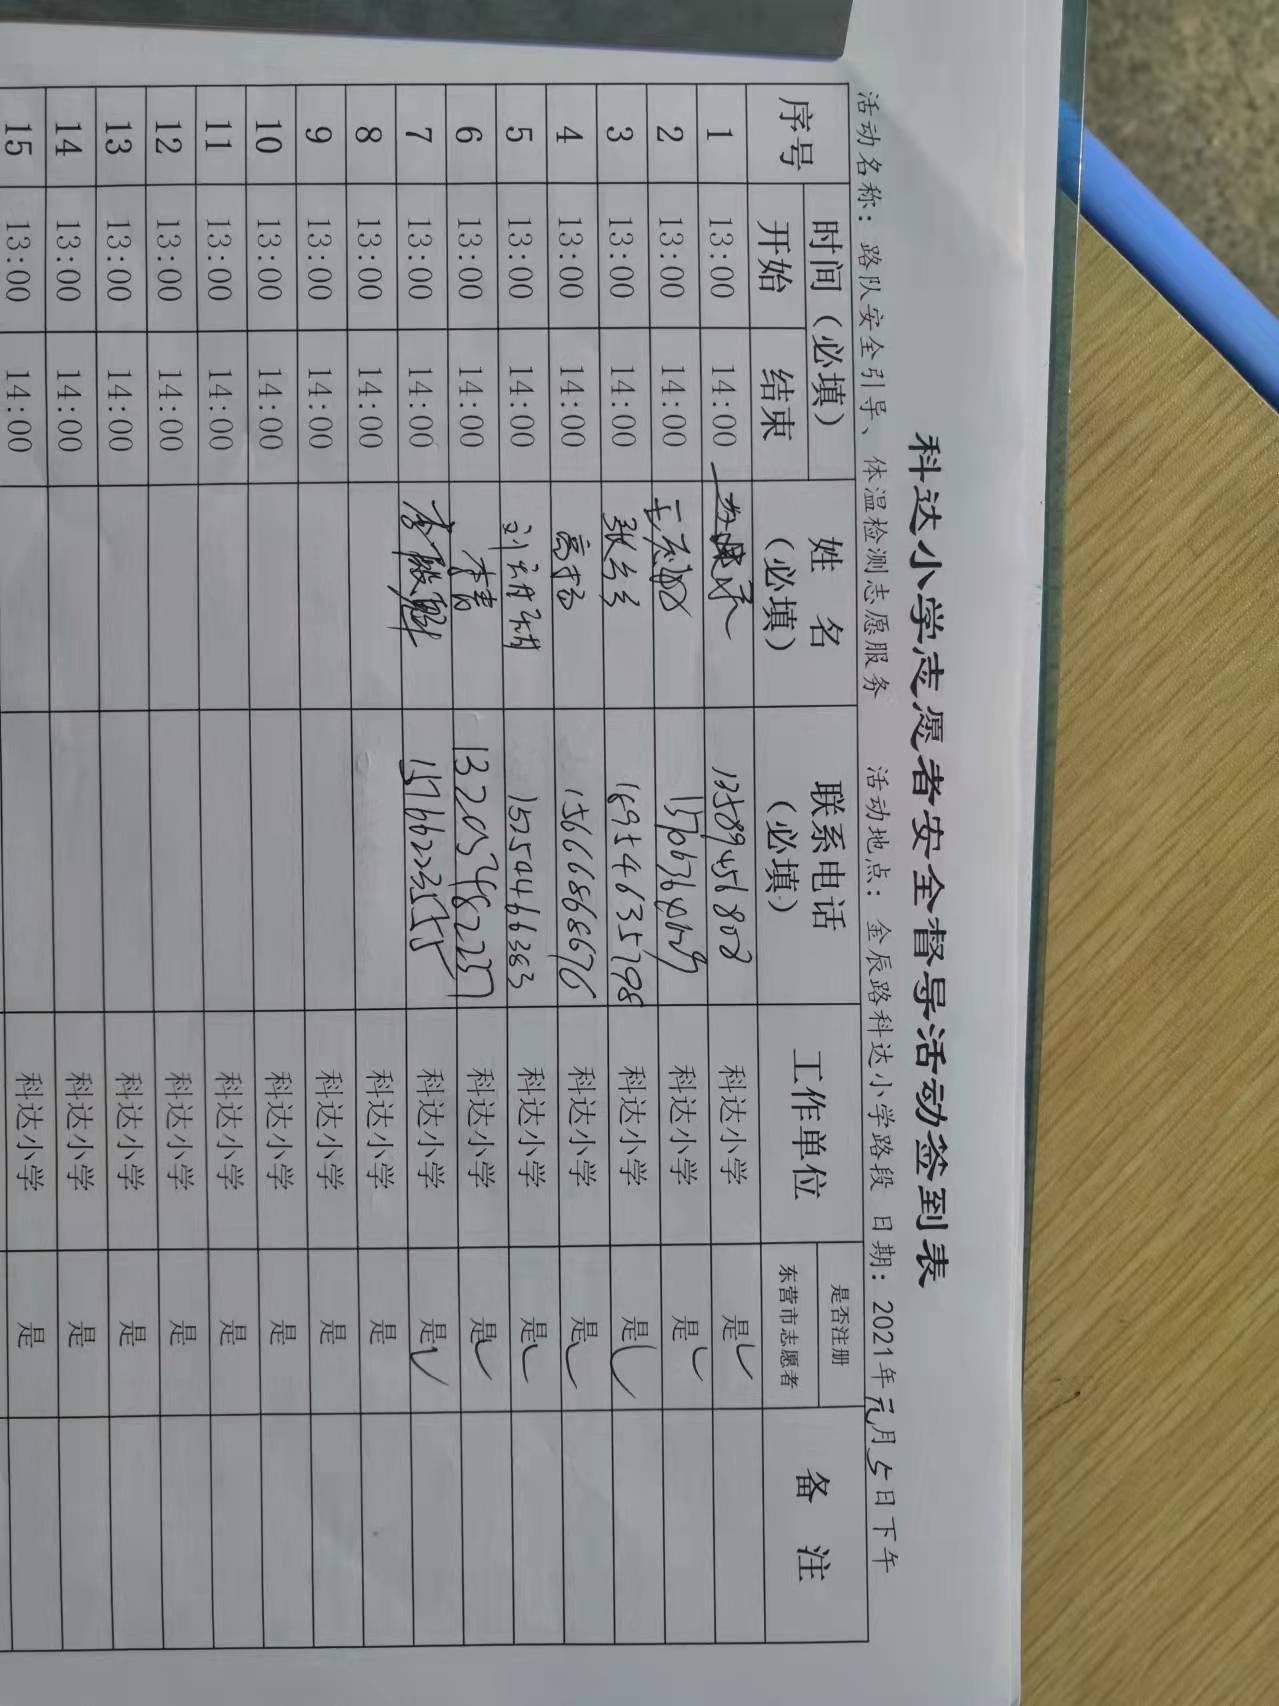 科达小学志愿者安全督导活动签到表
活动名称：路队安全引导、体温检测志愿服务 活动地点：金辰路科达小学路段 日期：2021年元月5日下午
序号 时间（必填） 姓名（必填） 联系电话（必填） 工作单位 是否注册东营市志愿者 备注
开始 结束
1 13:00 14:00 13589456808 科达小学 是✓
2 13:00 14:00 科达小学 是✓
3 13:00 14:00 张乡乡 科达小学 是✓
4 13:00 14:00 高扬 15666868676 科达小学 是✓
5 13:00 14:00 15254466383 科达小学 是✓
6 13:00 14:00 李青 科达小学 是✓
7 13:00 14:00 科达小学 是✓
8 13:00 14:00 科达小学 是
9 13:00 14:00 科达小学 是
10 13:00 14:00 科达小学 是
11 13:00 14:00 科达小学 是
12 13:00 14:00 科达小学 是
13 13:00 14:00 科达小学 是
14 13:00 14:00 科达小学 是
15 13:00 14:00 科达小学 是